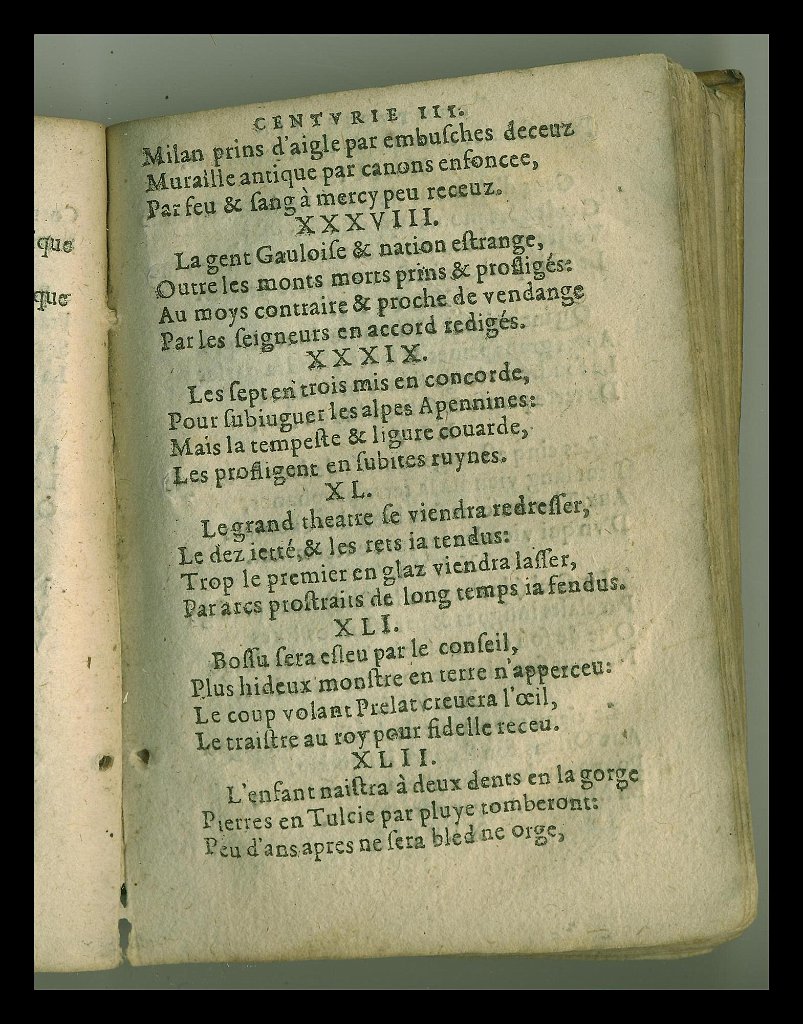 ique
que
CENTVRIE III.
Milan prins d'aigle par embuſches deceuz
Muraille antique par canons enfoncee,
Par feu & ſang à mercy peu receuz.
XXXVIII.
La gent Gauloiſe & nation eſtrange,
Outre les monts morts prins & profligés:
Au moys contraire & proche de vendange
Par les ſeigneurs en accord redigés.
XXXIX.
Les ſept en trois mis en concorde,
Pour ſubiuguer les alpes Apennines:
Mais la tempeſte & ligure couarde,
Les profligent en ſubites ruynes.
XL.
Le grand theatre ſe viendra redreſſer,
Le dez ietté, & les rets ia tendus:
Trop le premier en glaz viendra laſſer,
Par arcs proſtraits de long temps ia fendus.
XLI.
Boſſu ſera eſleu par le conſeil,
Plus hideux monſtre en terre n'apperceu:
Le coup volant Prelat creuera l'œil,
Le traiſtre au roy pour fidelle receu.
XLII.
L'enfant naiſtra à deux dents en la gorge
Pierres en Tuſcie par pluye tomberont:
Peu d'ans apres ne ſera bled ne orge,